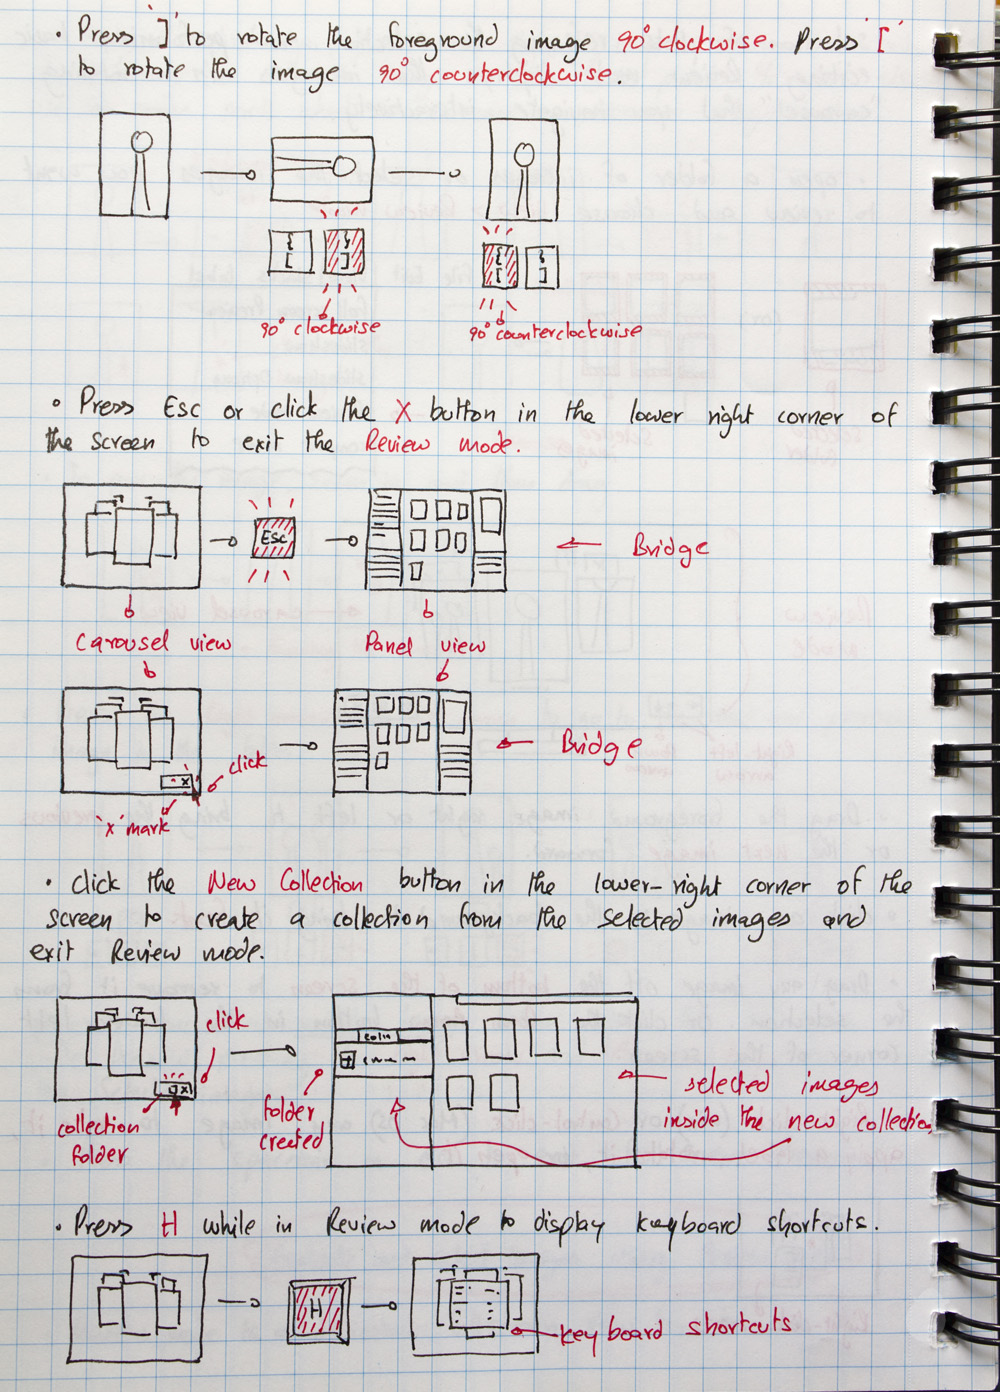 • Press ']' to rotate the foreground image 90° clockwise. Press '['
to rotate the image 90° counterclockwise.
{ [ } ]
{ [ } ]
90° clockwise
90° counterclockwise
• Press Esc or click the X button in the lower right corner of
the screen to exit the Review mode.
Esc
Bridge
Carousel view
Panel view
click
x
Bridge
'x' mark
• Click the New Collection button in the lower-right corner of the
screen to create a collection from the selected images and
exit Review mode.
click
x
collection
folder
folder
created
selected images
inside the new collection
• Press H while in Review mode to display keyboard shortcuts.
H
keyboard shortcuts